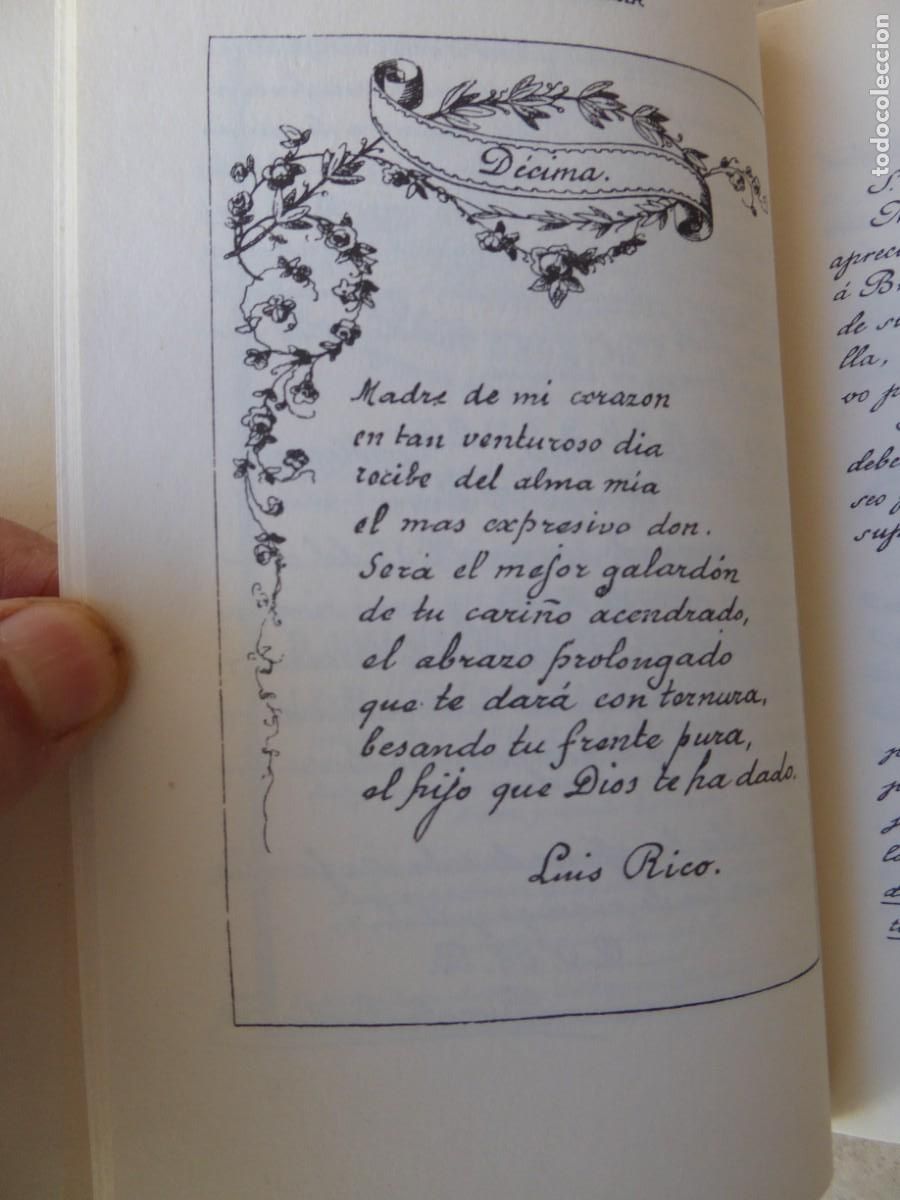 Décima.
Madre de mi corazon
en tan venturoso dia
recibe del alma mía
el mas expresivo don.
Será el mejor galardón
de tu cariño acendrado,
el abrazo prolongado
que te dará con ternura,
besando tu frente pura,
el hijo que Dios te ha dado.
Luis Rico.
S.
aprec
á B
de su
lla,
vo p
debe
seo p
sup
todocoleccion